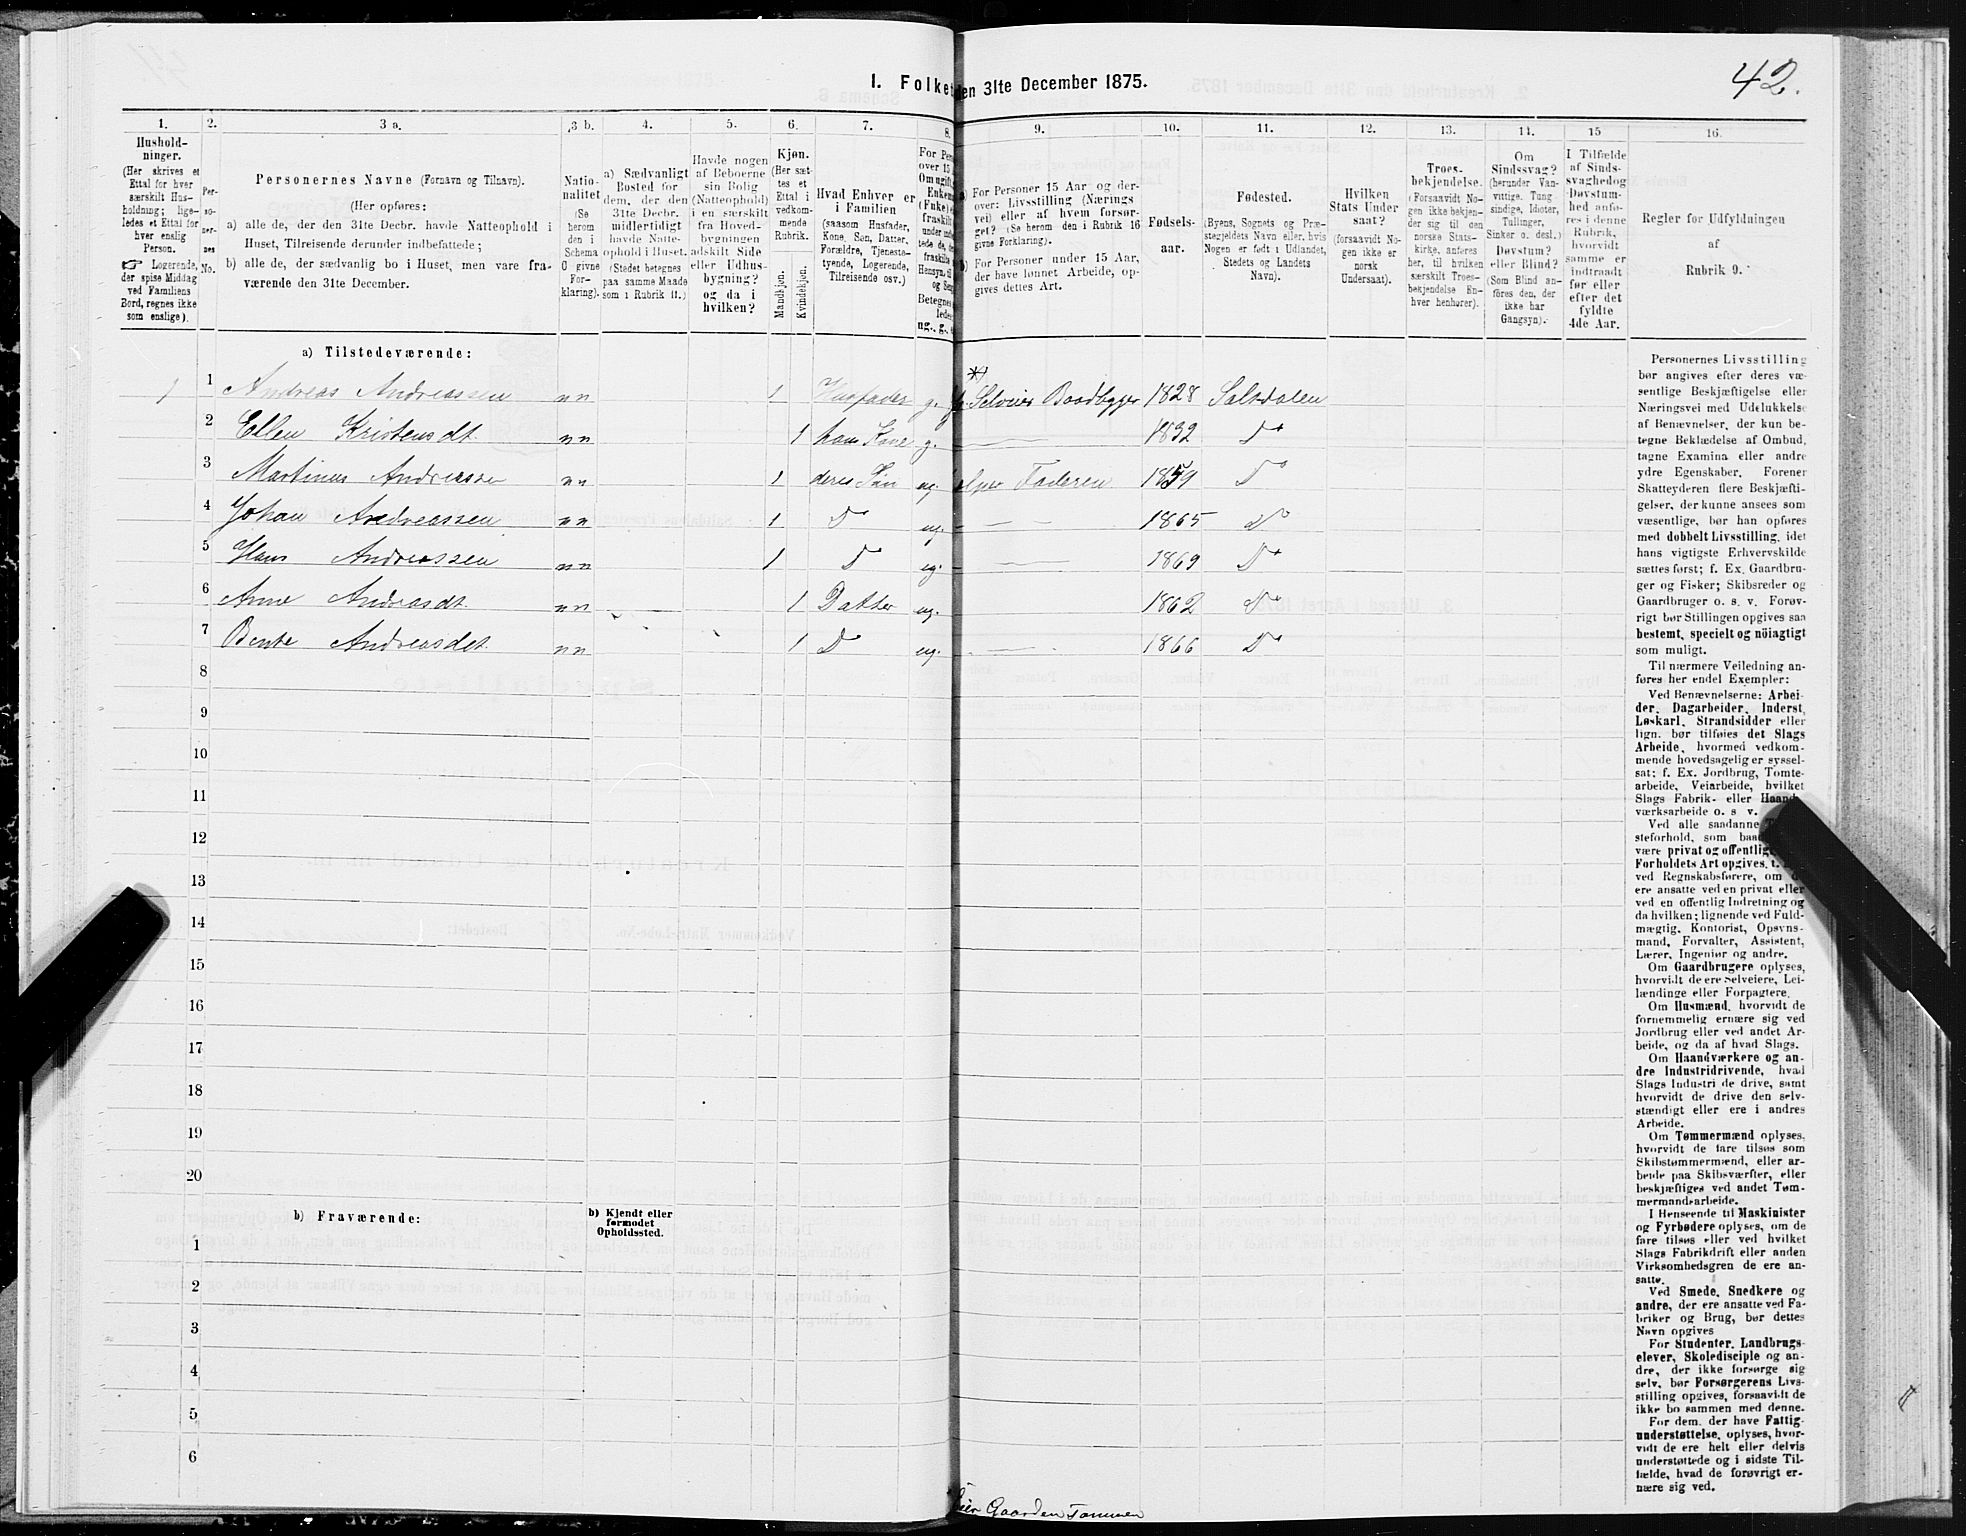 42.
I. Folket
den 31te December 1875.
1. 2. 3 a. 3 b. 4. 5. 6. 7. 8. 9. 10. 11. 12. 13. 14. 15 16.
Hushold-
ninger.
(Her skrives et
Ettal for hver
særskilt Hus-
holdning; lige-
ledes et Ettal for
hver enslig
Person.
☞ Logerende,
der spise Middag
ved Familiens
Bord, regnes ikke
som enslige).
Per-
so-
ner-
nes
No.
Personernes Navne (Fornavn og Tilnavn).
(Her opføres:
a) alle de, der den 31te Decbr. havde Natteophold i
Huset, Tilreisende derunder indbefattede;
b) alle de, der sædvanlig bo i Huset, men vare fra-
værende den 31te December.
Natio-
nalitet
(Se
herom
den i
Schema
C givne
For-
klaring).
a) Sædvanligt
Bosted for
dem, der den
31te Decbr.
midlertidigt
havde Natte-
ophold i Huset.
(Stedet betegnes
paa samme Maade
som i Rubrik 11.)
Havde nogen
af Beboerne
sin Bolig
(Natteophold)
i en særskilt
fra Hoved-
bygningen
adskilt Side
eller Udhus-
bygning?
og da i
hvilken?
Kjøn.
(Her sæt-
tes et
Ettal i
vedkom-
mende
Rubrik.
Mandkjøn.
Kvindekjøn.
Hvad Enhver er
i Familien
(saasom Husfader,
Kone, Søn, Datter,
Forældre, Tjeneste-
tyende, Logerende,
Tilreisende osv.)
For Pers
over 15
Om ugift,
Enkem
(Fuke)
fraskilt
under ind
tede de,
fraskilte
Hensyn til
og Seng
Betegnes
lede
ug., g., e
a) For Personer 15 Aar og der-
over: Livsstilling (Nærings
vei) eller af hvem forsør-
get? (Se herom den i Rubrik 16
givne Forklaring).
b) For Personer under 15 Aar,
der have lønnet Arbeide, op-
gives dettes Art.
Fødsels-
aar.
Fødested.
(Byens, Sognets og Præ-
stegjeldets Navn eller, hvis
Nogen er født i Udlandet,
Stedets og Landets
Navn).
Hvilken
Stats Under
saat?
(forsaavidt No-
gen ikke er
norsk
Undersaat).
Troes-
bekjendelse.
(Forsaavidt No-
gen ikke bekjen-
der sig til den
norske Stats-
kirke, anføres
her, til hvilken
særskilt Troes-
bekjendelse En-
hver henhører).
Om
Sindssvag?
(herunder Van-
vittige, Tung
sindige, Idioter,
Tullinger,
Sinker o. desl.)
Døvstum?
eller Blind?
(Som Blind an-
føres den, der
ikke har
Gangsyn).
I Tilfælde
af Sinds-
svaghed og
Døvstum-
hed anfø-
res i denne
Rubrik,
hvorvidt
samme er
indtraadt
før eller
efter det
fyldte
4de Aar.
Regler for Udfyldningen
af
Rubrik 9.
a) Tilstedeværende:
1 1 Andreas Andreassen nn 1 Husfader g. *) Selveier Baadbygger 1828 Saltdalen
2 Ellen Kristensdt. nn 1 hans Kone g. 1832 Do
3 Martinus Andreassen nn 1 deres Søn ug. Faderen 1859 Do
4 Johan Andreassen nn 1 Do ug. 1865 Do
5 Hans Andreassen nn 1 Do ug. 1869 Do
6 Anne Andreasdt. nn 1 Datter ug. 1862 Do
7 Bente Andreasdt. nn 1 Do ug. 1866 Do
8
9
10
11
12
13
14
15
16
17
18
19
20
b) Fraværende:
b) Kjendt eller
formodet
Opholdssted.
1
2
3
4
5
6
Personernes Livsstilling
bør angives efter deres væ-
sentlige Beskjæftigelse eller
Næringsvei med Udelukkelse
af Benævnelser, der kun be-
tegne Beklædelse af Ombud,
tagne Examina eller andre
ydre Egenskaber. Forener
Skatteyderen flere Beskjæfti-
gelser, der kunne ansees som
væsentlige, bør han opføres
med dobbelt Livsstilling, idet
hans vigtigste Erhvervskilde
sættes først; f. Ex. Gaardbru-
ger og Fisker; Skibsreder og
Gaardbruger o. s. v. Forøv-
rigt bør Stillingen opgives saa
bestemt, specielt og nöiagtigt
som muligt.
Til nærmere Veiledning an-
føres her endel Exempler:
Ved Benævnelserne: Arbei-
der, Dagarbeider, Inderst,
Løskarl, Strandsidder eller
lign. bør tilføies det Slags
Arbeide, hvormed vedkom-
mende hovedsagelig er syssel-
sat; f. Ex. Jordbrug, Tomte-
arbeide, Veiarbeide, hvilket
Slags Fabrik- eller Haand-
værksarbeide o. s v.
Ved alle saadanne
steforhold, som
være privat og offentlig
Forholdets Art opgives,
ved Regnskabsførere, om
ere ansatte ved en privat eller
ved en offentlig Indretning og
da hvilken; lignende ved Fuld-
mægtig, Kontorist, Opsyns-
mand, Forvalter, Assistent,
Lærer, Ingeniør og andre.
Om Gaardbrugere oplyses,
hvorvidt de ere Selveiere, Lei-
lændinge eller Forpagtere.
Om Husmænd, hvorvidt de
fornemmelig ernære sig ved
Jordbrug eller ved andet Ar-
beide, og da af hvad Slags.
Om Haandværkere og an-
dre Industridrivende, hvad
Slags Industri de drive, samt
hvorvidt de drive den selv-
stændigt eller ere i andres
Arbeide.
Om Tømmermænd oplyses,
hvorvidt de fare tilsøs som
Skibstømmermænd, eller ar-
beide paa Skibsværfter, eller
beskjæftiges ved andet Tøm-
mermandsarbeide.
I Henseende til Maskinister
og Fyrbødere oplyses, om de
fare tilsøs eller ved hvilket
Slags Fabrikdrift eller anden
Virksomhedsgren de ere an-
satte.
Ved Smede, Snedkere og
andre, der ere ansatte ved Fa-
briker og Brug, bør dettes
Navn opgives
For Studenter, Landbrugs-
elever, Skoledisciple og an-
dre, der ikke forsørge sig
selv, bør Forsørgerens Livs-
stilling opgives, forsaavidt de
ikke bo sammen med denne.
For dem, der have Fattig-
understøttelse, oplyses, hvor-
vidt de ere helt eller delvis
understøttede og i sidste Til-
fælde, hvad de forøvrigt er-
nære sig ved.
Gaarden